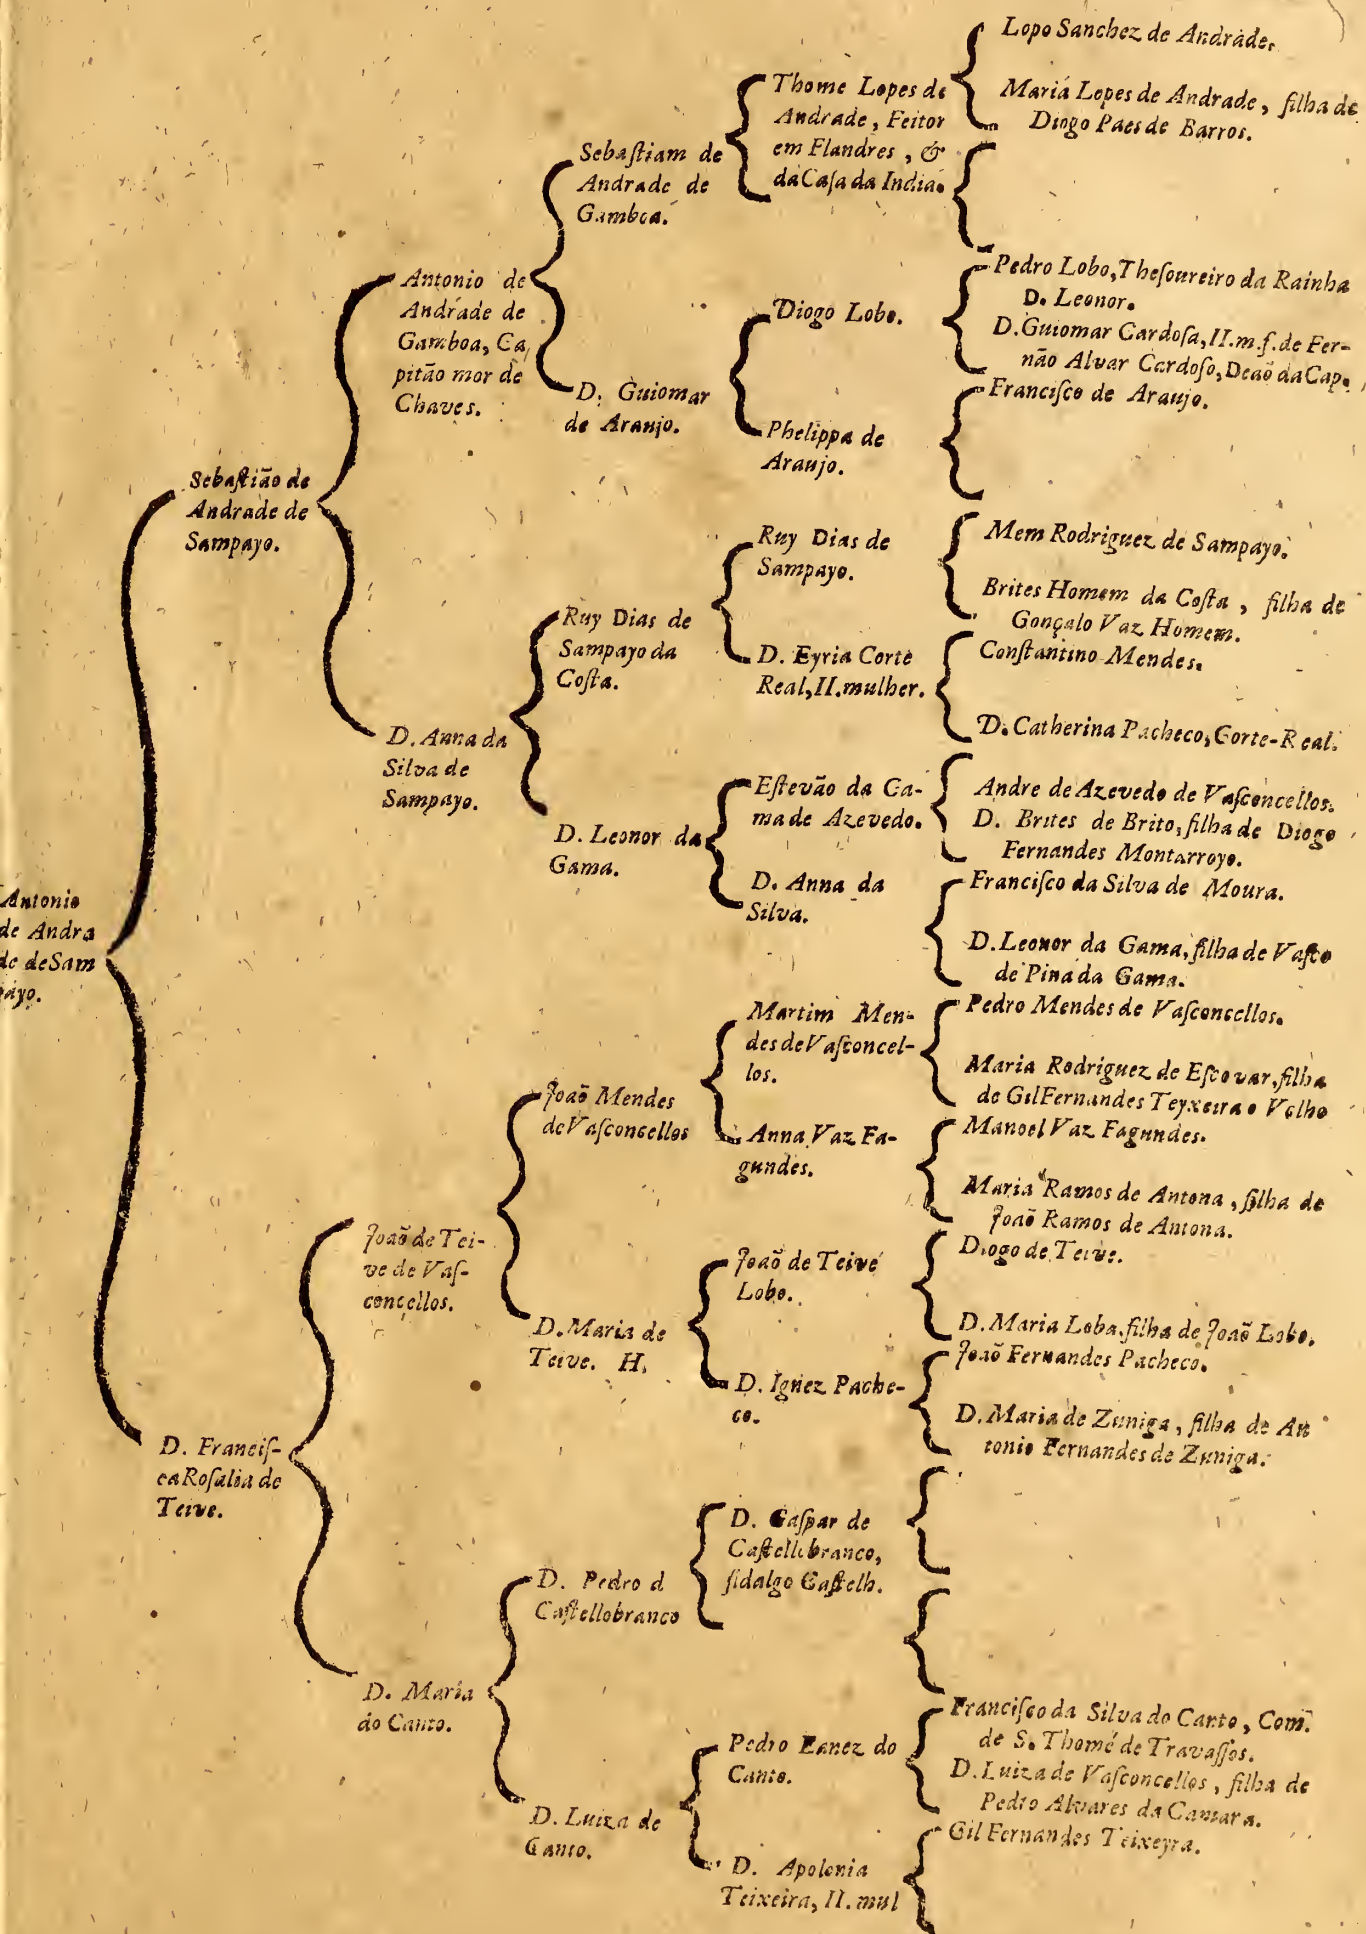 Antonio
de Andra
de de Sam
payo.
Sebaſtião de
Andrade de
Sampayo.
D. Franciſ-
ca Roſalia de
Teive.
Antonio de
Andrade de
Gamboa, Ca
pitão mor de
Chaves.
D. Anna da
Silva de
Sampayo.
Joaõ de Tei-
ve de Vaſ-
concellos.
D. Maria
do Canto.
Sebaſtiam de
Andrade de
Gamboa.
D. Guiomar
de Araujo.
Ruy Dias de
Sampayo da
Coſta.
D. Leonor da
Gama.
Joaõ Mendes
de Vaſconcellos
D. Maria de
Teive. H.
D. Pedro d
Caſtellobranco
D. Luiza de
Canto.
Thome Lopes de
Andrade, Feitor
em Flandres, &
da Caſa da India.
Diogo Lobo.
Phelippa de
Araujo.
Ruy Dias de
Sampayo.
D. Eyria Corte
Real, II. mulher.
Eſtevão da Ga-
ma de Azevedo.
D. Anna da
Silva.
Martim Men-
des de Vaſconcel-
los.
Anna Vaz Fa-
gundes.
Joaõ de Teive
Lobo.
D. Ignez Pache-
co.
D. Gaſpar de
Caſtellobranco,
fidalgo Caſtelh.
Pedro Eanez do
Canto.
D. Apolonia
Teixeira, II. mul
Lopo Sanchez de Andrade.
Maria Lopes de Andrade, filha de
Diogo Paes de Barros.
Pedro Lobo, Theſoureiro da Rainha
D. Leonor.
D. Guiomar Cardoſa, II. m. f. de Fer-
não Alvar Cardoſo, Deaõ da Cap.
Franciſco de Araujo.
Mem Rodriguez de Sampayo.
Brites Homem da Coſta, filha de
Gonçalo Vaz Homem.
Conſtantino Mendes.
D. Catherina Pacheco, Corte-Real.
Andre de Azevedo de Vaſconcellos.
D. Brites de Brito, filha de Diogo
Fernandes Montarroyo.
Franciſco da Silva de Moura.
D. Leonor da Gama, filha de Vaſco
de Pina da Gama.
Pedro Mendes de Vaſconcellos.
Maria Rodriguez de Eſcovar, filha
de Gil Fernandes Teyxeira o Velho
Manoel Vaz Fagundes.
Maria Ramos de Antona, filha de
Joaõ Ramos de Antona.
Diogo de Teive.
D. Maria Loba, filha de Joaõ Lobo.
Joaõ Fernandes Pacheco.
D. Maria de Zuniga, filha de An
tonio Fernandes de Zuniga.
Franciſco da Silva do Canto, Com.
de S. Thomé de Travaſſos.
D. Luiza de Vaſconcellos, filha de
Pedro Alvares da Camara.
Gil Fernandes Teixeyra.